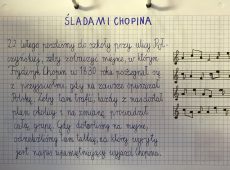 ŚLADAMI CHOPINA
22 lutego poszliśmy do szkoły przy ulicy
czyńskiej, żeby zobaczyć miejsce, w którym
Fryderyk Chopin w 1830 roku pożegnał się
z przyjaciółmi, gdy na zawsze opuszczał
Polskę. Żeby tam trafić, każdy z nas dostał
plan okolicy i na zmianę prowadził
całą grupę. Gdy dotarliśmy na miejsce,
odnaleźliśmy tam tablicę, na której wyryty
jest napis upamiętniający wyjazd Chopina.